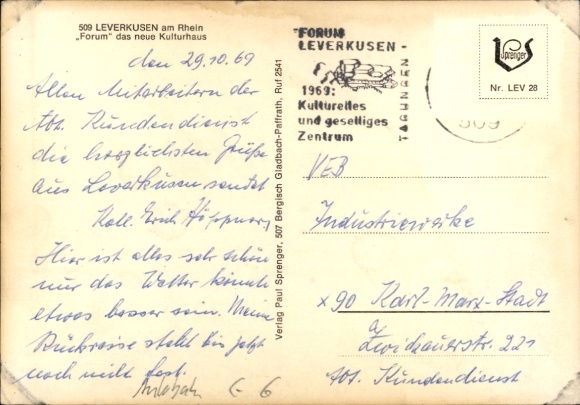 509 LEVERKUSEN am Rhein
„Forum" das neue Kulturhaus
den 29.10.69
Allen Mitarbeitern der
Abt. Kundendienst
die herzlichsten Grüße
aus Leverkusen sendet
Koll. Erich
Hier ist alles sehr schön
nur das Wetter könnte
etwas besser sein. Meine
Rückreise steht bis jetzt
noch nicht fest.
6
Verlag Paul Sprenger, 507 Bergisch Gladbach-Paffrath, Ruf 2541
FORUM
LEVERKUSEN -
1969:
Kulturelles
und geselliges
Zentrum
TAGUNGEN
509
Sprenger
Nr. LEV 28
VEB
Industriewerke
x90 Karl-Marx-Stadt
Zwickauerstr. 221
Abt. Kundendienst